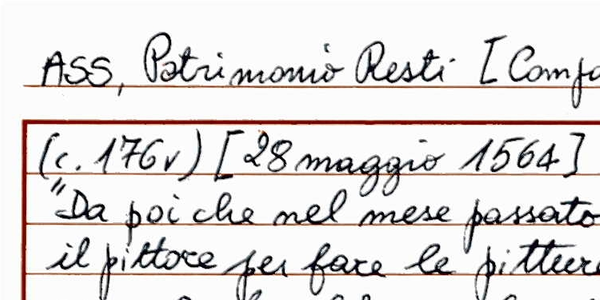 ASS, Patrimonio Resti [Comp
(c. 176v) [28 maggio 1564]
"Da poi che nel mese passato
il pittore per fare le pitture